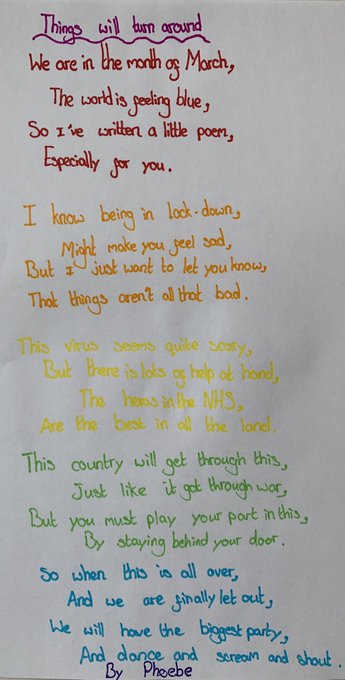 Things will turn around
We are in the month of March,
The world is feeling blue,
So I've written a little poem,
Especially for you.
I know being in lock-down,
Might make you feel sad,
But I just want to let you know,
That things aren't all that bad.
This virus seems quite scary,
But there is lots of help at hand,
The heros in the NHS,
Are the best in all the land.
This country will get through this,
Just like it got through war,
But you must play your part in this,
By staying behind your door.
So when this is all over,
And we are finally let out,
We will have the biggest party,
And dance and scream and shout.
By Phoebe